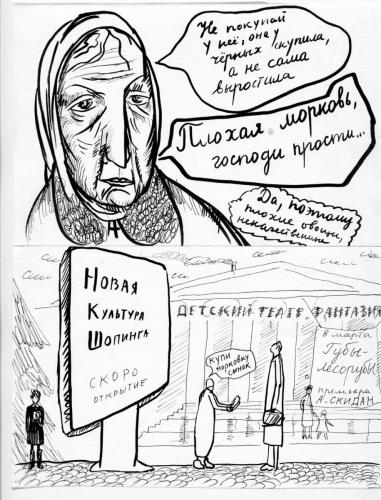 Не покупай
у неё, она у
чёрных скупила,
а не сама
выростила
Плохая морковь,
господи прости...
Да, поэтому
плохие овощи,
некачественные
Новая
Культура
Шопинга
СКОРО
ОТКРЫТИЕ
ДЕТСКИЙ ТЕАТР ФАНТАЗИЯ
КУПИ
МОРКОВКУ
СЫНОК
8 марта
Губы-
лесорубы
премьера
А. СКИДАН